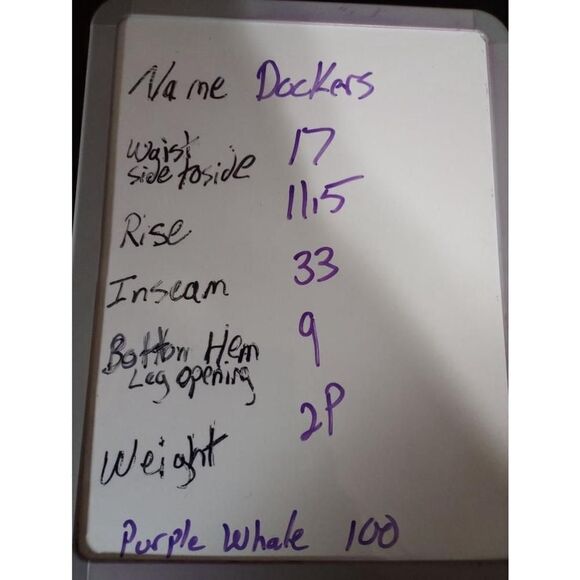 Name Dockers
Waist 17
side to side
Rise 11.5
Inseam 33
Bottom Hem 9
Leg opening
Weight 2P
Purple Whale 100